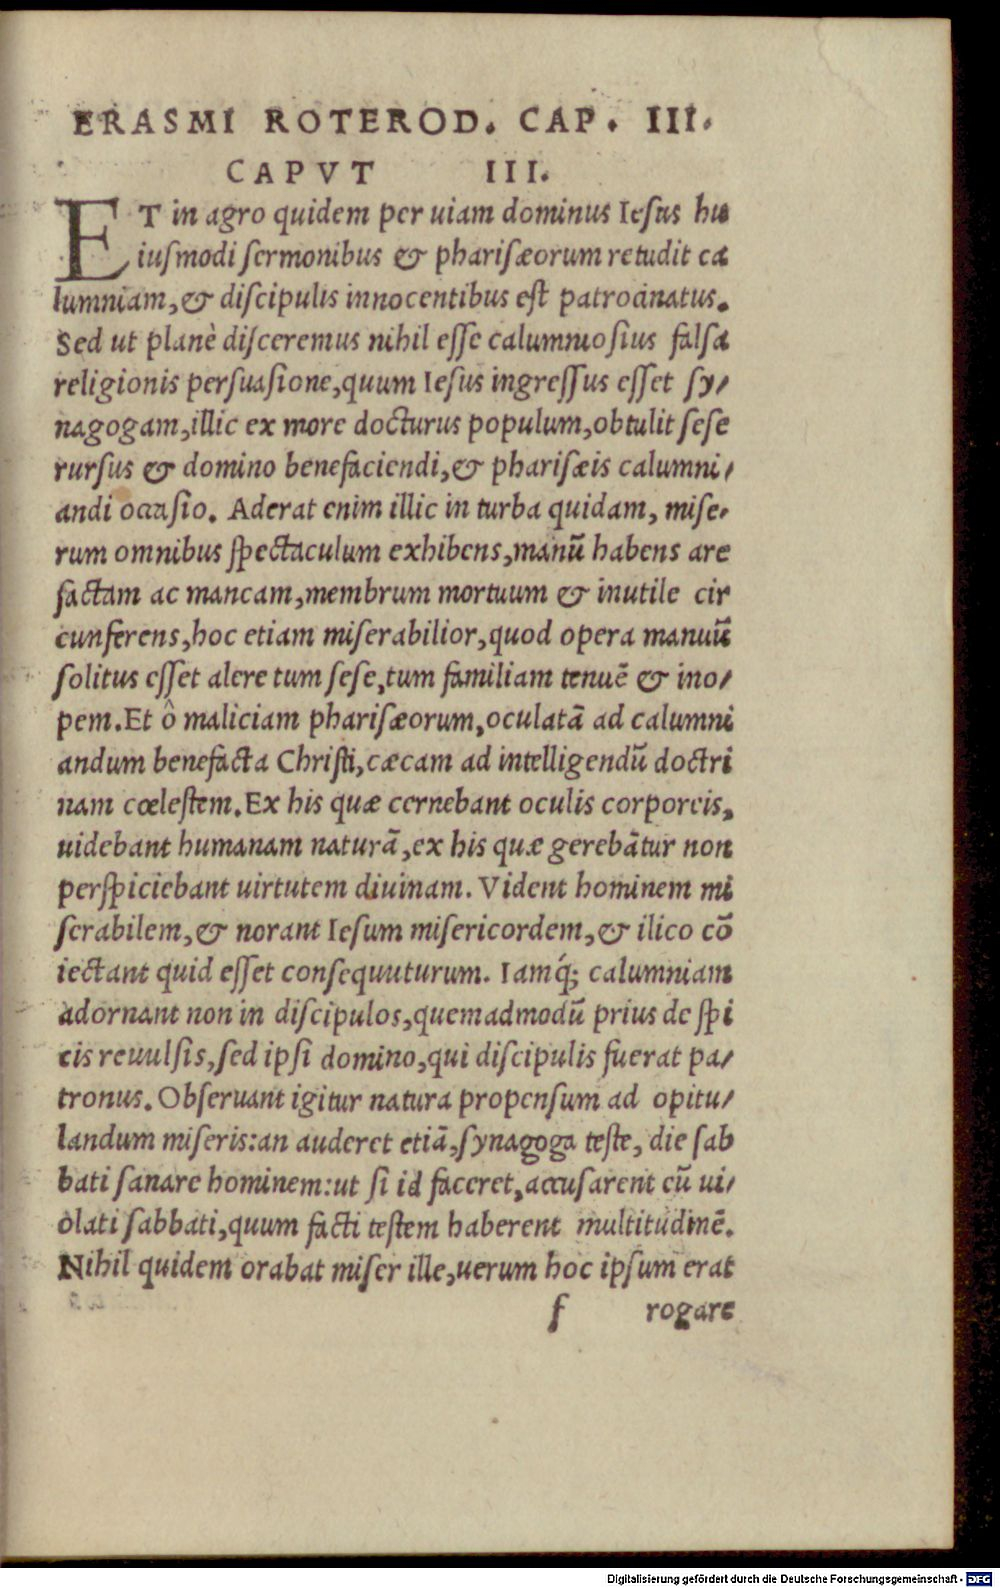 ERASMI ROTEROD. CAP. III.
CAPVT III.
ET in agro quidem per uiam dominus Iesus hu
iusmodi sermonibus & pharisæorum retudit ca
lumniam, & discipulis innocentibus est patrocinatus.
Sed ut planè disceremus nihil esse calumniosius falsa
religionis persuasione, quum Iesus ingressus esset sy-
nagogam, illic ex more docturus populum, obtulit sese
rursus & domino benefaciendi, & pharisæis calumni-
andi occasio. Aderat enim illic in turba quidam, mise-
rum omnibus spectaculum exhibens, manū habens are
factam ac mancam, membrum mortuum & inutile cir
cunferens, hoc etiam miserabilior, quod opera manuū
solitus esset alere tum sese, tum familiam tenuē & ino-
pem. Et ô maliciam pharisæorum, oculatā ad calumni
andum benefacta Christi, cæcam ad intelligendū doctri
nam cœlestem. Ex his quæ cernebant oculis corporeis,
uidebant humanam naturā, ex his quæ gerebātur non
perspiciebant uirtutem diuinam. Vident hominem mi
serabilem, & norant Iesum misericordem, & ilico cō
iectant quid esset consequuturum. Iamq́; calumniam
adornant non in discipulos, quemadmodū prius de spi
cis reuulsis, sed ipsi domino, qui discipulis fuerat pa-
tronus. Obseruant igitur natura propensum ad opitu-
landum miseris: an auderet etiā, synagoga teste, die sab
bati sanare hominem: ut si id faceret, accusarent eū ui-
olati sabbati, quum facti testem haberent multitudinē.
Nihil quidem orabat miser ille, uerum hoc ipsum erat
f rogare
Digitalisierung gefördert durch die Deutsche Forschungsgemeinschaft - DFG